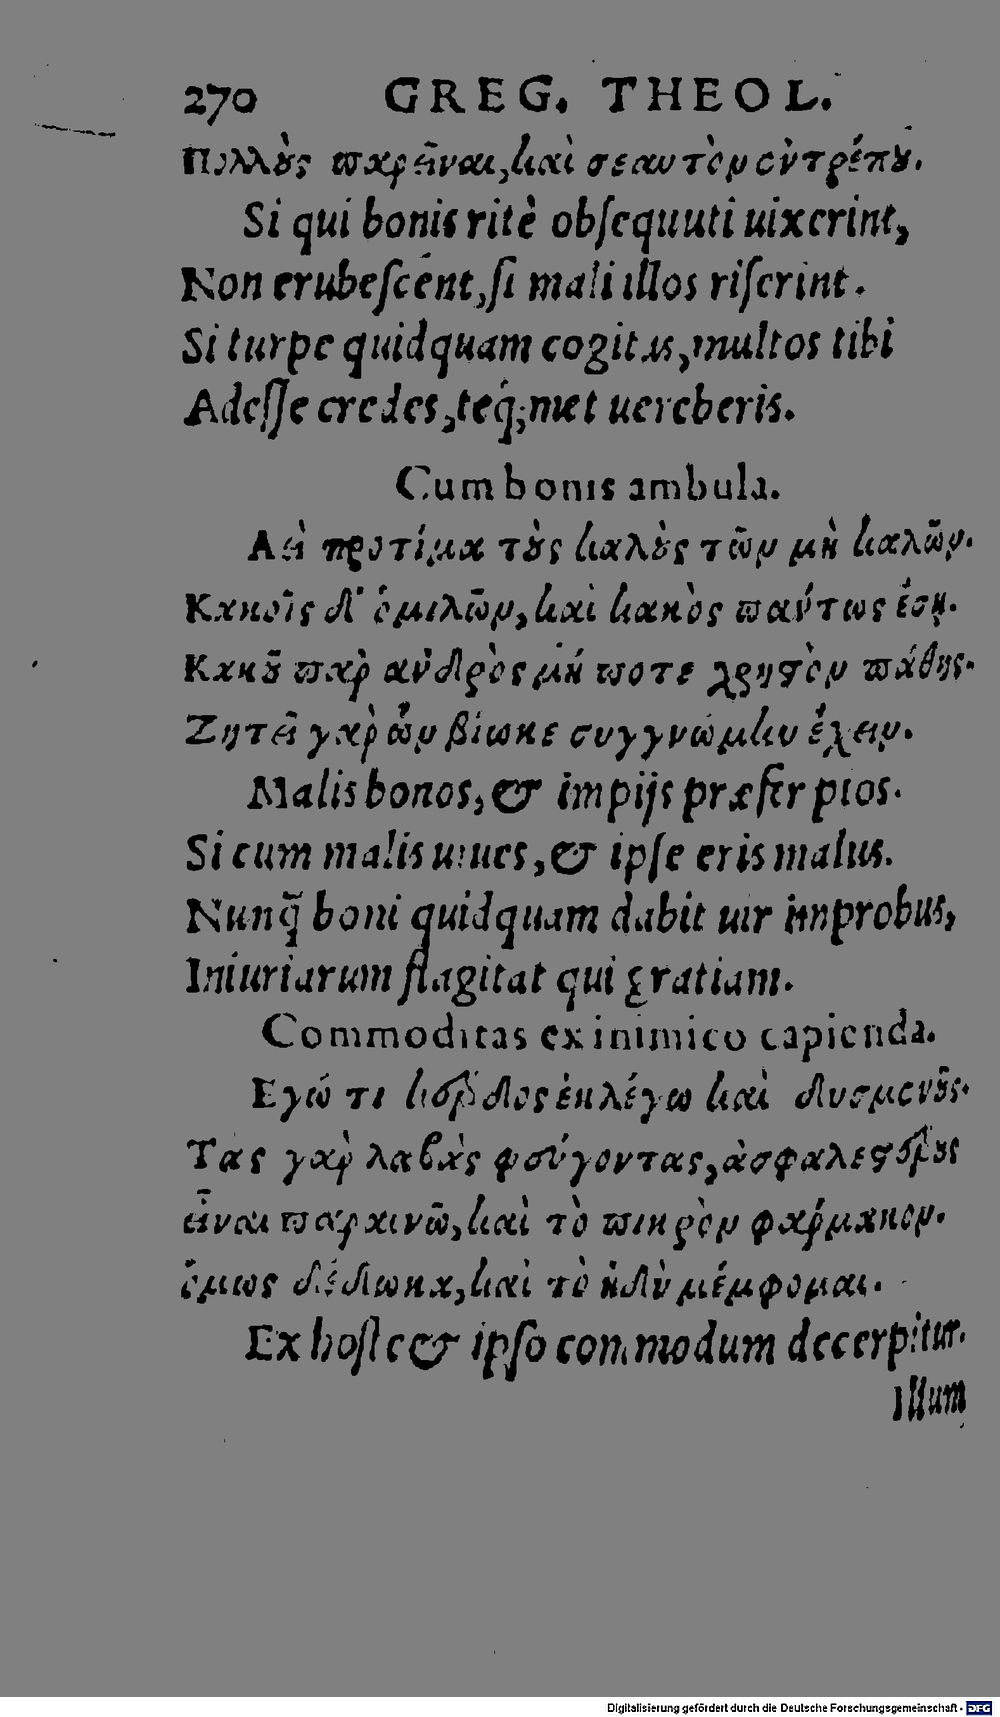 270 GREG. THEOL.
Πολλοὺς παρεῖναι, καὶ σεαυτὸν ἐντρέπου.
Si qui bonis ritè obſequuti uixerint,
Non erubeſcent, ſi mali illos riſerint.
Si turpe quidquam cogitas, multos tibi
Adeſſe credes, teq́;met uereberis.
Cum bonis ambula.
Αεὶ προτίμα τοὺς καλοὺς τῶν μὴ καλῶν.
Κακοῖς δ' ὁμιλῶν, καὶ κακὸς πάντως ἔσῃ.
Κακοῦ παρ' ἀνδρὸς μή ποτε χρηστὸν πάθῃς.
Ζητεῖ γὰρ ὧν βίωκε συγγνώμην ἔχειν.
Malis bonos, & impijs præfer pios.
Si cum malis uiues, & ipſe eris malus.
Nunq̃ boni quidquam dabit uir improbus,
Iniuriarum flagitat qui gratiam.
Commoditas ex inimico capienda.
Εγώ τι κέρδος ἐκλέγω καὶ δυσμενοῦς.
Τας γὰρ λαβὰς φεύγοντας, ἀσφαλεστέρους
εἶναι παραινῶ, καὶ τὸ πικρὸν φάρμακον.
ὅμως δέδωκα, καὶ τὸ ἡδὺ μέμφομαι.
Ex hoſte & ipſo commodum decerpitur.
Illum
Digitalisierung gefördert durch die Deutsche Forschungsgemeinschaft - DFG